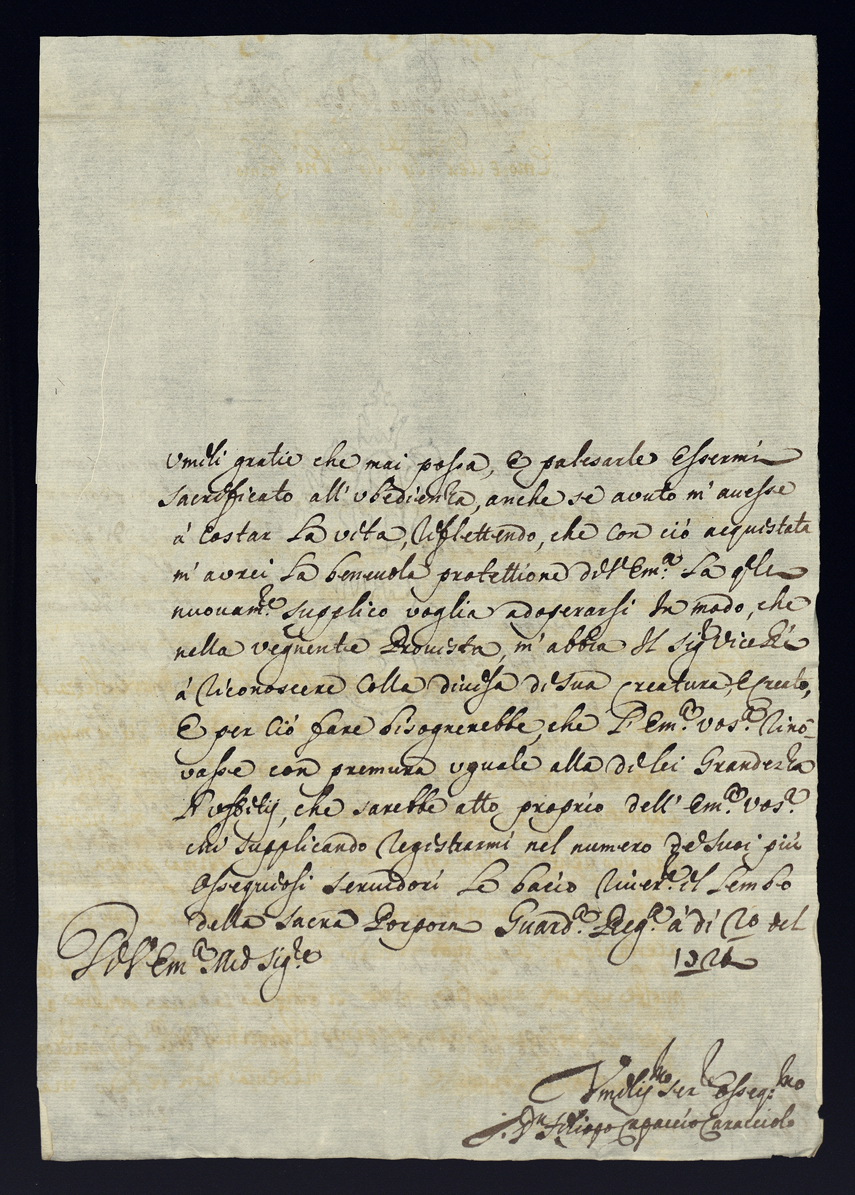 vmili gratie che mai possa, e palesarle essermi
sacrificato all' vbedienza, anche se avuto m' auesse
à costar la vita, riflettendo, che con ciò acquistata
m' avrei la beneuola protettione dell' Em.ᵃ La qle
nuouam.ᵗᵉ supplico voglia adoperarsi in modo, che
nella vegnente Prouista, m' abbia il sig.ʳ Vice Rè
à riconoscere colla diuisa di sua creatura, e creato,
e per ciò fare bisognerebbe, che l' Em.ᵃ vos.ᵃ rino-
vasse con premura vguale alla di lei Grandezza
che sarebbe atto proprio dell' Em.ᵃ vos.ᵃ
che supplicando registrarmi nel numero de suoi più
ossequiosi seruidori le bacio river.ᵗᵉ il lembo
della sacra Porpora Guard.ᵃ Reg.ᵃ à di 20 del
Em.ᵃ sig.ʳᵉ
Vmiliss.ᵐᵒ ser.ᵉ osseq.ᵐᵒ
Capaccio Caracciolo